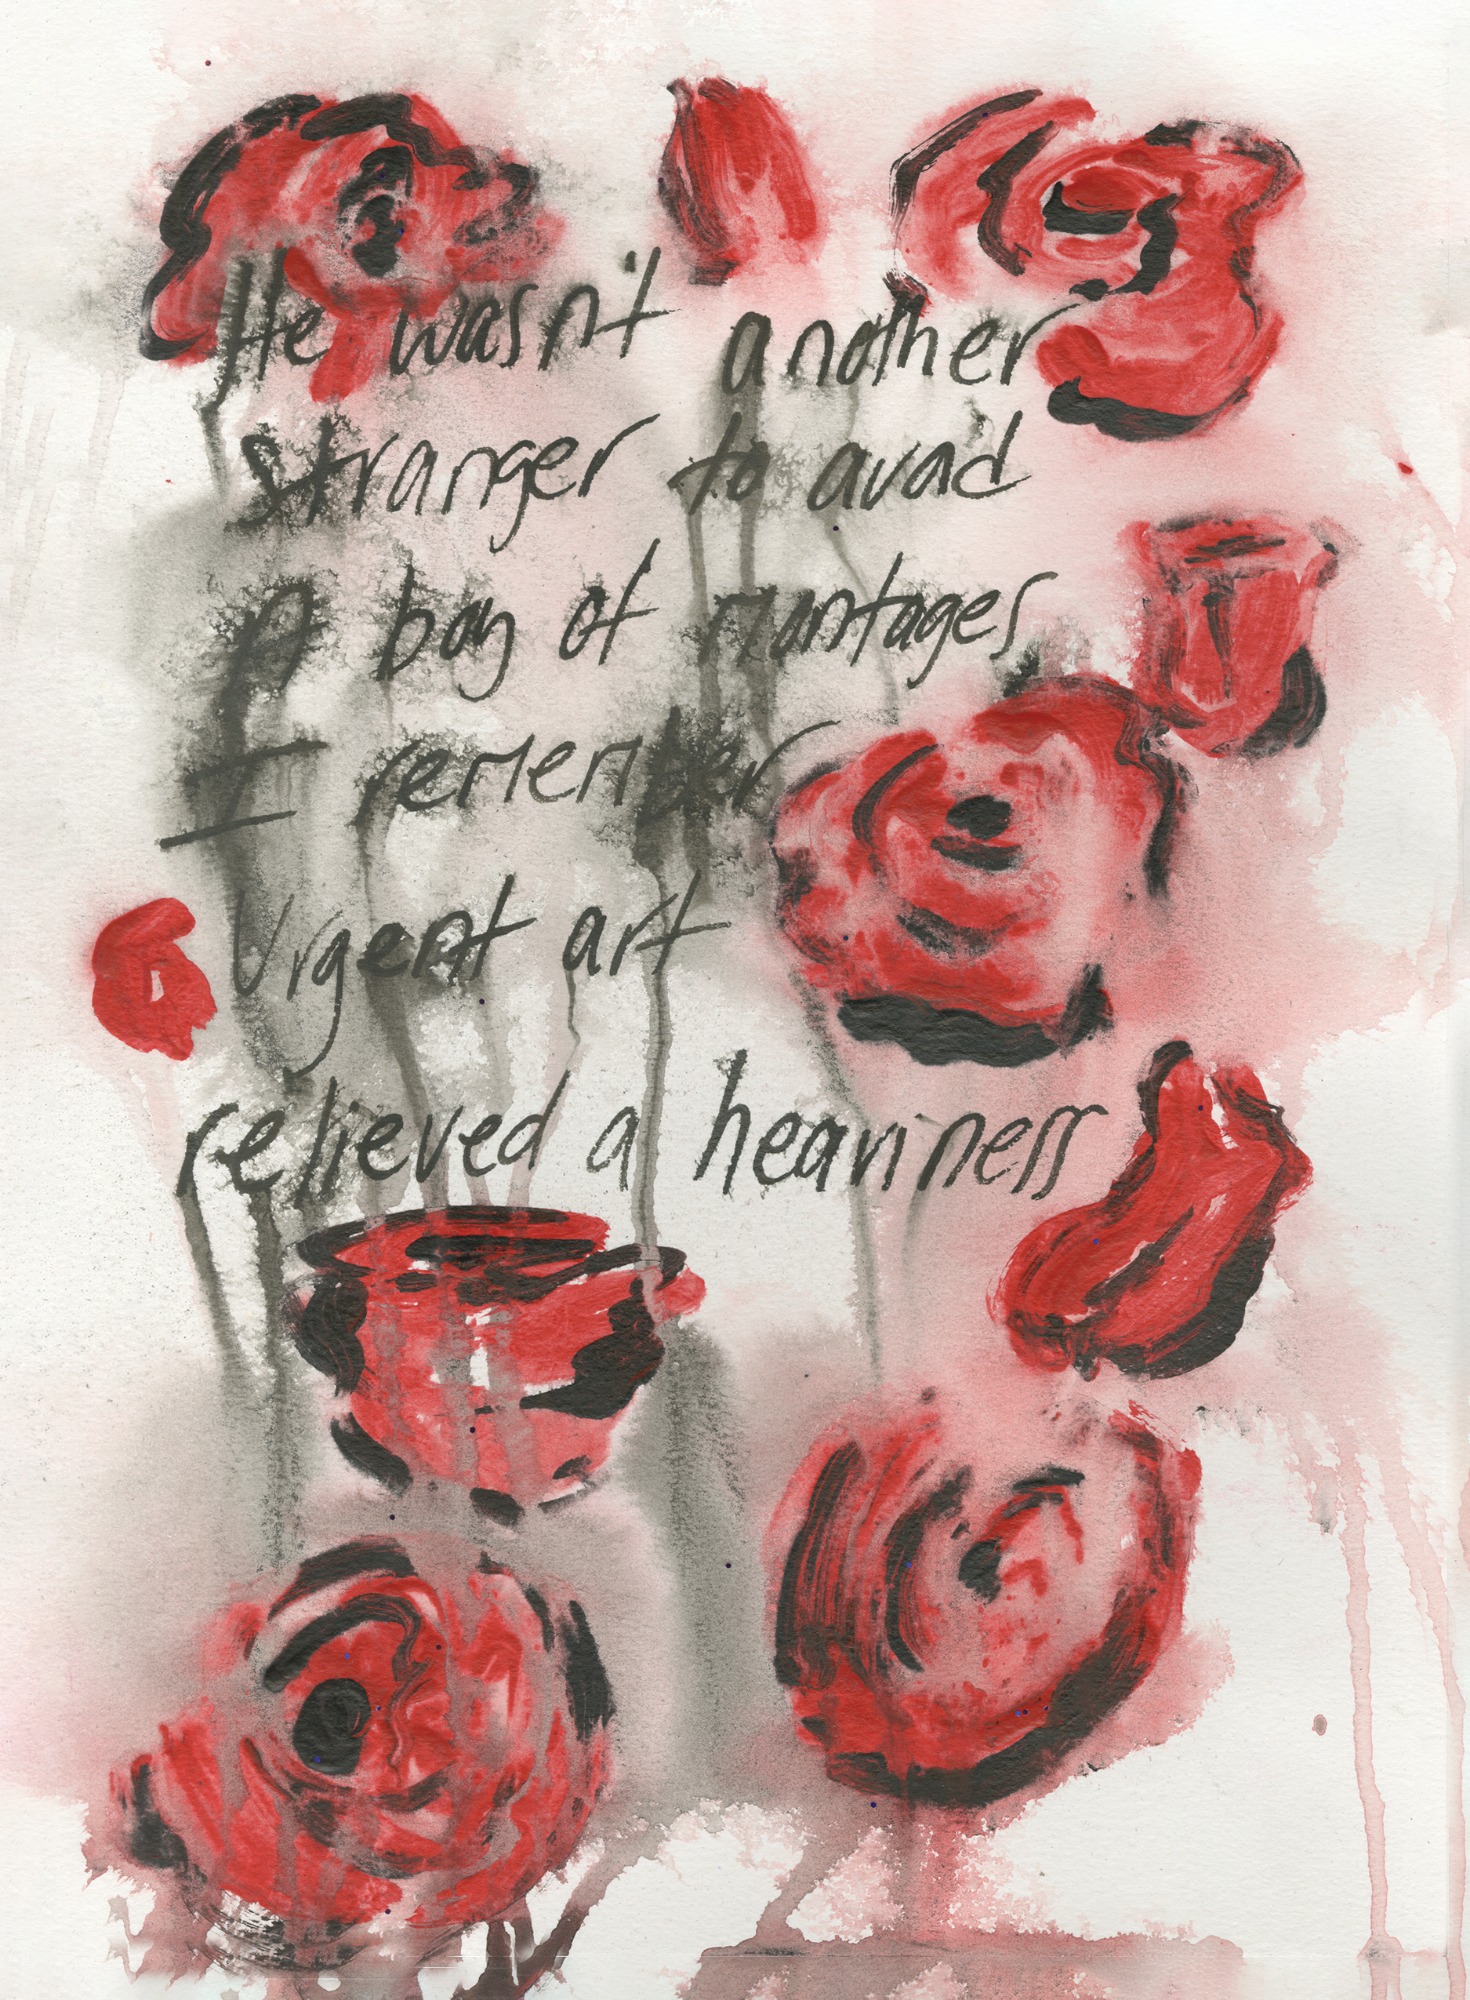 He wasn't another
stranger to avoid
A boy of montages
I remember
Urgent art
relieved a heaviness